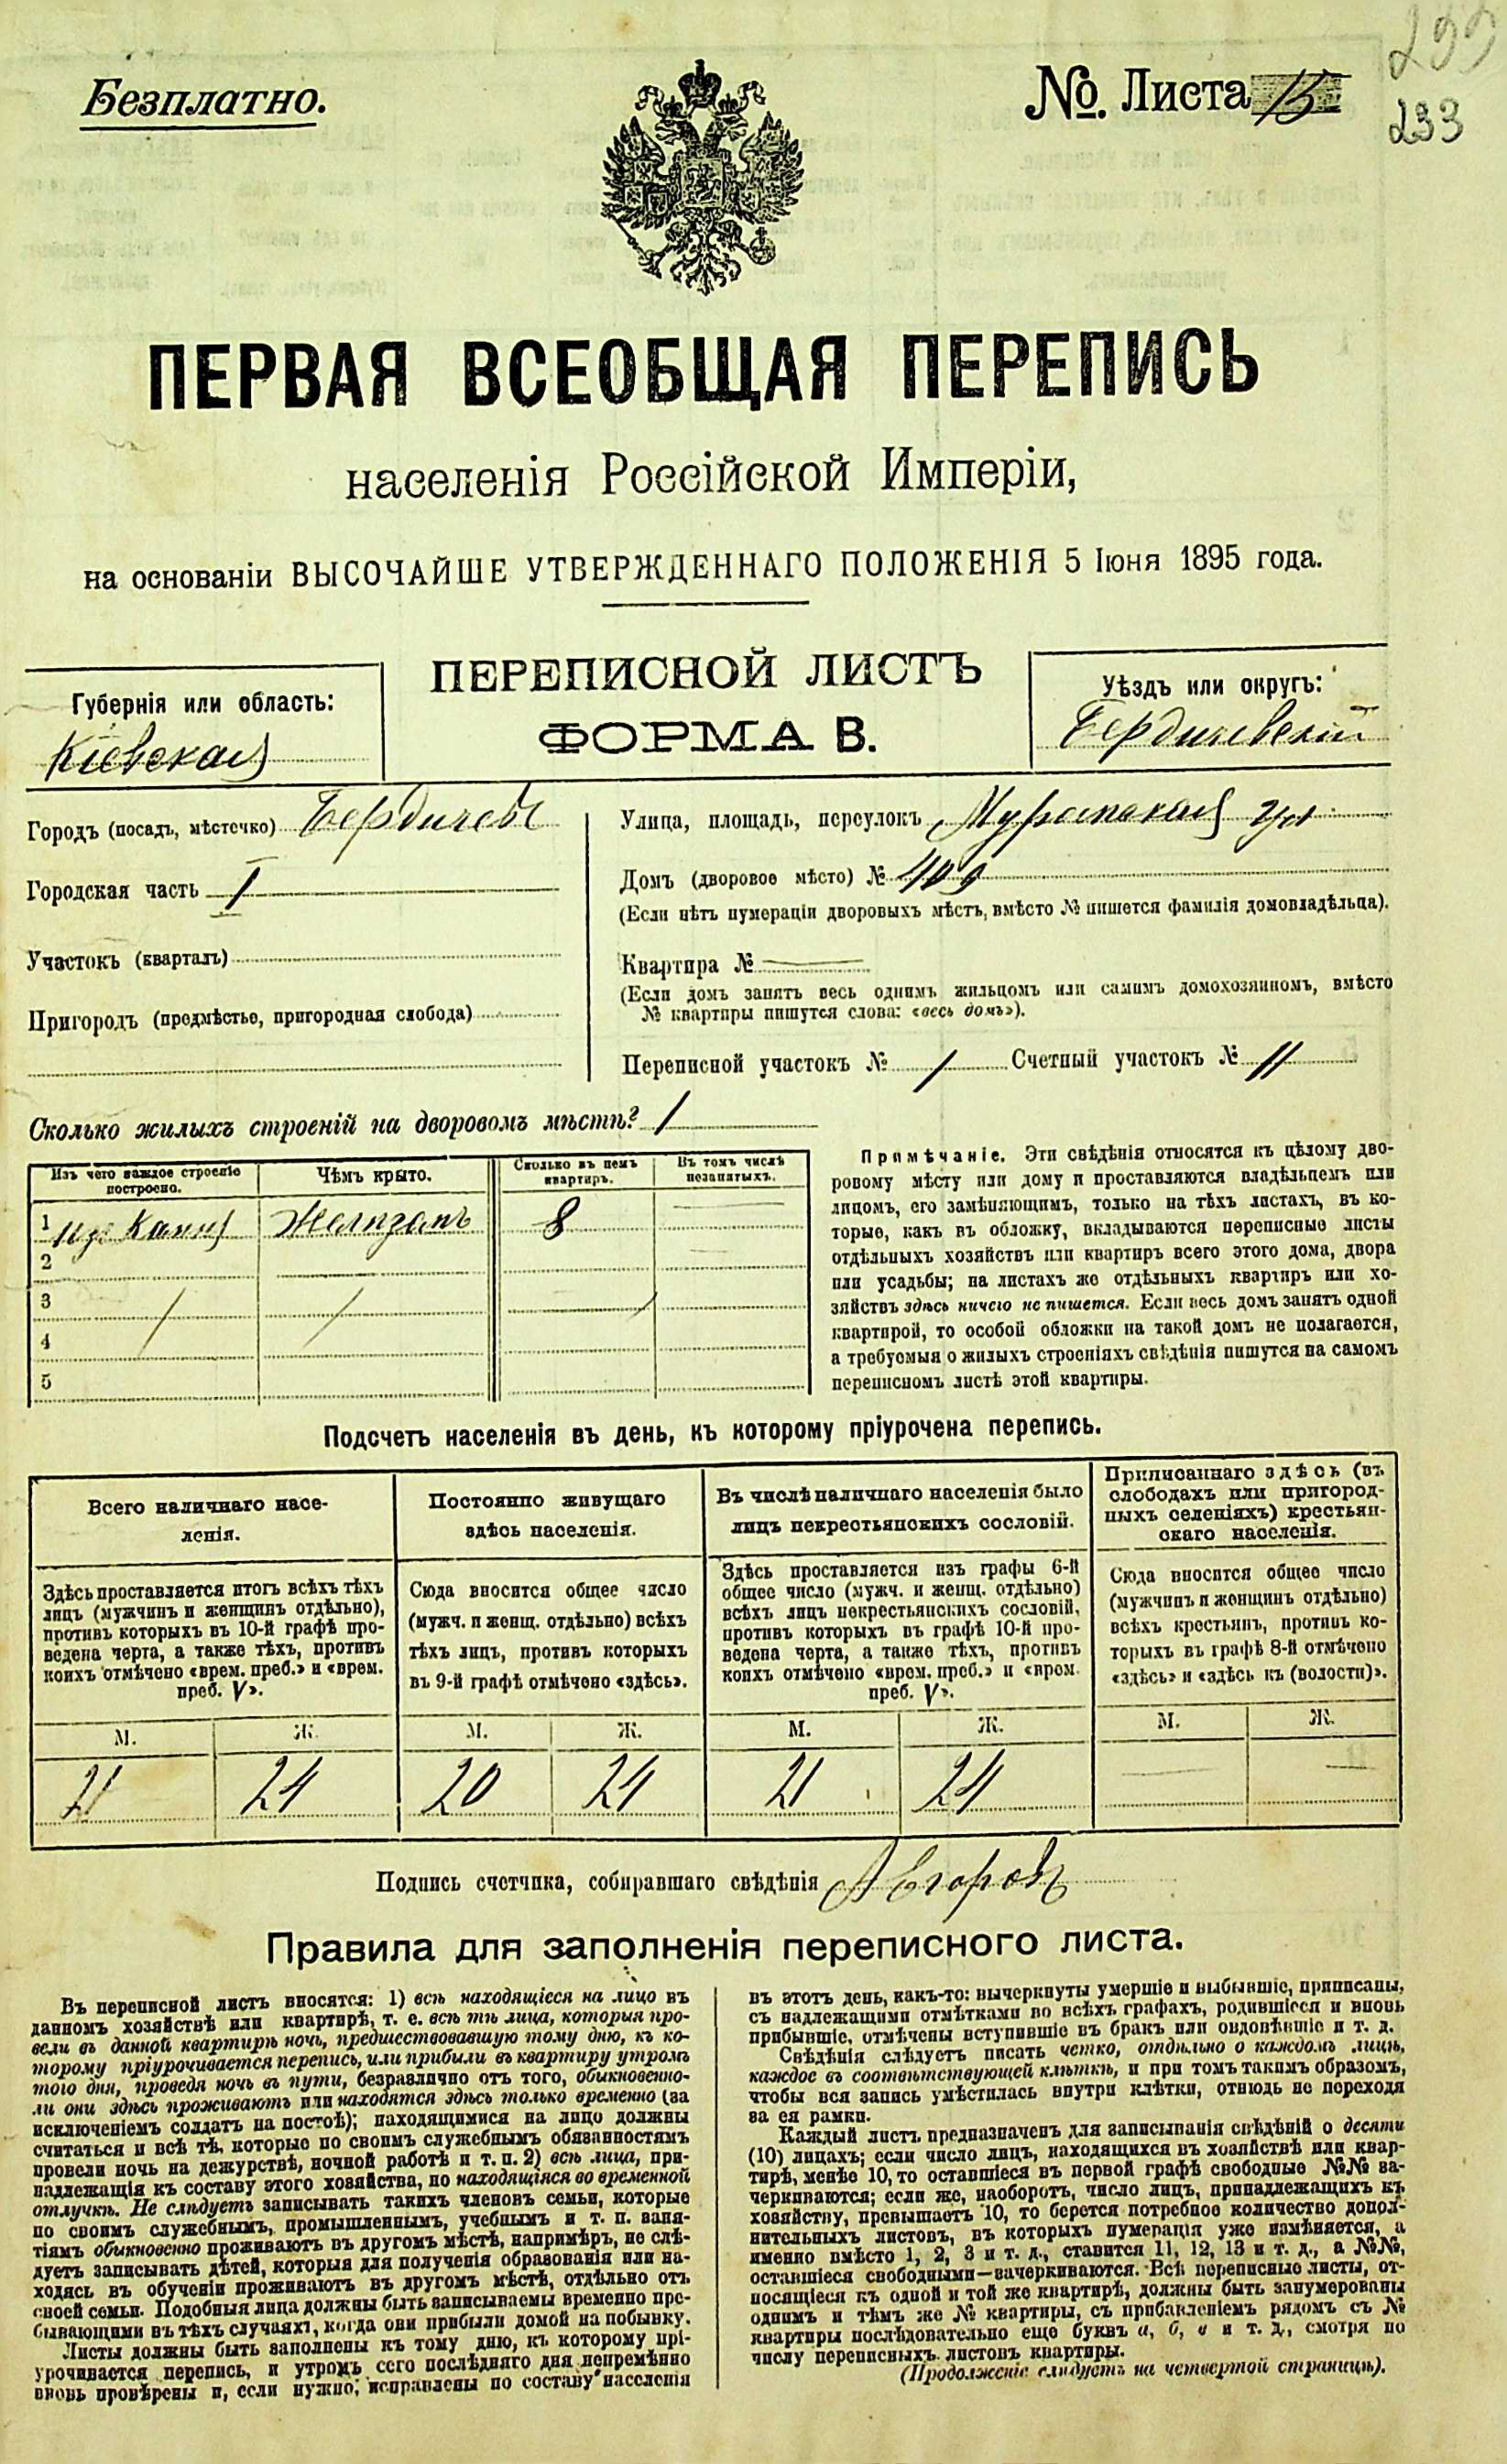 233
Безплатно.
№. Листа 15
ПЕРВАЯ ВСЕОБЩАЯ ПЕРЕПИСЬ
населенія Россійской Имперіи,
на основаніи ВЫСОЧАЙШЕ УТВЕРЖДЕННАГО ПОЛОЖЕНІЯ 5 Іюня 1895 года.
ПЕРЕПИСНОЙ ЛИСТЪ
ФОРМА В.
Губернія или область:
Кіевская
Уѣздъ или округъ:
Бердичевскій
Городъ (посадъ, мѣстечко) Бердичевъ
Городская часть I
Участокъ (кварталъ)
Пригородъ (предмѣстье, пригородная слобода)
Улица, площадь, переулокъ
Домъ (дворовое мѣсто) № 409
(Если нѣтъ нумераціи дворовыхъ мѣстъ, вмѣсто № пишется фамилія домовладѣльца).
Квартира №
(Если домъ занятъ весь однимъ жильцомъ или самимъ домохозяиномъ, вмѣсто
№ квартиры пишутся слова: «весь домъ»).
Переписной участокъ № 1 Счетный участокъ № 11
Сколько жилыхъ строеній на дворовомъ мѣстѣ? 1
Изъ чего каждое строеніе построено.
Чѣмъ крыто.
Сколько въ немъ квартиръ.
Въ томъ числѣ незанятыхъ.
1 изъ камня Желѣзомъ 8
2
3
4
5
Примѣчаніе. Эти свѣдѣнія относятся къ цѣлому дво-
ровому мѣсту или дому и проставляются владѣльцемъ или
лицомъ, его замѣняющимъ, только на тѣхъ листахъ, въ ко-
торые, какъ въ обложку, вкладываются переписные листы
отдѣльныхъ хозяйствъ или квартиръ всего этого дома, двора
или усадьбы; на листахъ же отдѣльныхъ квартиръ или хо-
зяйствъ здѣсь ничего не пишется. Если весь домъ занятъ одной
квартирой, то особой обложки на такой домъ не полагается,
а требуемыя о жилыхъ строеніяхъ свѣдѣнія пишутся на самомъ
переписномъ листѣ этой квартиры.
Подсчетъ населенія въ день, къ которому пріурочена перепись.
Всего наличнаго насе-
ленія.
Здѣсь проставляется итогъ всѣхъ тѣхъ
лицъ (мужчинъ и женщинъ отдѣльно),
противъ которыхъ въ 10-й графѣ про-
ведена черта, а также тѣхъ, противъ
коихъ отмѣчено «врем. преб.» и «врем.
преб. V».
М. Ж.
21 24
Постоянно живущаго
здѣсь населенія.
Сюда вносится общее число
(мужч. и женщ. отдѣльно) всѣхъ
тѣхъ лицъ, противъ которыхъ
въ 9-й графѣ отмѣчено «здѣсь».
М. Ж.
20 24
Въ числѣ наличнаго населенія было
лицъ некрестьянскихъ сословій.
Здѣсь проставляется изъ графы 6-й
общее число (мужч. и женщ. отдѣльно)
всѣхъ лицъ некрестьянскихъ сословій,
противъ которыхъ въ графѣ 10-й про-
ведена черта, а также тѣхъ, противъ
коихъ отмѣчено «врем. преб.» и «врем.
преб. V».
М. Ж.
21 24
Приписаннаго здѣсь (въ
слободахъ или пригород-
ныхъ селеніяхъ) крестьян-
скаго населенія.
Сюда вносится общее число
(мужчинъ и женщинъ отдѣльно)
всѣхъ крестьянъ, противъ ко-
торыхъ въ графѣ 8-й отмѣчено
«здѣсь» и «здѣсь къ (волости)».
М. Ж.
Подпись счетчика, собиравшаго свѣдѣнія А Егоровъ
Правила для заполненія переписного листа.
Въ переписной листъ вносятся: 1) всѣ находящіеся на лицо въ
данномъ хозяйствѣ или квартирѣ, т. е. всѣ тѣ лица, которыя про-
вели въ данной квартирѣ ночь, предшествовавшую тому дню, къ ко-
торому пріурочивается перепись, или прибыли въ квартиру утромъ
того дня, проведя ночь въ пути, безразлично отъ того, обыкновенно-
ли они здѣсь проживаютъ или находятся здѣсь только временно (за
исключеніемъ солдатъ на постоѣ); находящимися на лицо должны
считаться и всѣ тѣ, которые по своимъ служебнымъ обязанностямъ
провели ночь на дежурствѣ, ночной работѣ и т. п. 2) всѣ лица, при-
надлежащія къ составу этого хозяйства, но находящіяся во временной
отлучкѣ. Не слѣдуетъ записывать такихъ членовъ семьи, которые
по своимъ служебнымъ, промышленнымъ, учебнымъ и т. п. заня-
тіямъ обыкновенно проживаютъ въ другомъ мѣстѣ, напримѣръ, не слѣ-
дуетъ записывать дѣтей, которыя для полученія образованія или на-
ходясь въ обученіи проживаютъ въ другомъ мѣстѣ, отдѣльно отъ
своей семьи. Подобныя лица должны быть записываемы временно пре-
бывающими въ тѣхъ случаяхъ, когда они прибыли домой на побывку.
Листы должны быть заполнены къ тому дню, къ которому прі-
урочивается перепись, и утромъ сего послѣдняго дня непремѣнно
вновь провѣрены и, если нужно, исправлены по составу населенія
въ этотъ день, какъ-то: вычеркнуты умершіе и выбывшіе, приписаны,
съ надлежащими отмѣтками во всѣхъ графахъ, родившіеся и вновь
прибывшіе, отмѣчены вступившіе въ бракъ или овдовѣвшіе и т. д.
Свѣдѣнія слѣдуетъ писать четко, отдѣльно о каждомъ лицѣ,
каждое въ соотвѣтствующей клѣткѣ, и при томъ такимъ образомъ,
чтобы вся запись умѣстилась внутри клѣтки, отнюдь не переходя
за ея рамки.
Каждый листъ предназначенъ для записыванія свѣдѣній о десяти
(10) лицахъ; если число лицъ, находящихся въ хозяйствѣ или квар-
тирѣ, менѣе 10, то оставшіеся въ первой графѣ свободные №№ за-
черкиваются; если же, наоборотъ, число лицъ, принадлежащихъ къ
хозяйству, превышаетъ 10, то берется потребное количество допол-
нительныхъ листовъ, въ которыхъ нумерація уже измѣняется, а
именно вмѣсто 1, 2, 3 и т. д., ставится 11, 12, 13 и т. д., а №№,
оставшіеся свободными—зачеркиваются. Всѣ переписные листы, от-
носящіеся къ одной и той же квартирѣ, должны быть занумерованы
однимъ и тѣмъ же № квартиры, съ прибавленіемъ рядомъ съ №
квартиры послѣдовательно еще буквъ а, б, в и т. д., смотря по
числу переписныхъ листовъ квартиры.
(Продолженіе слѣдуетъ на четвертой страницѣ).